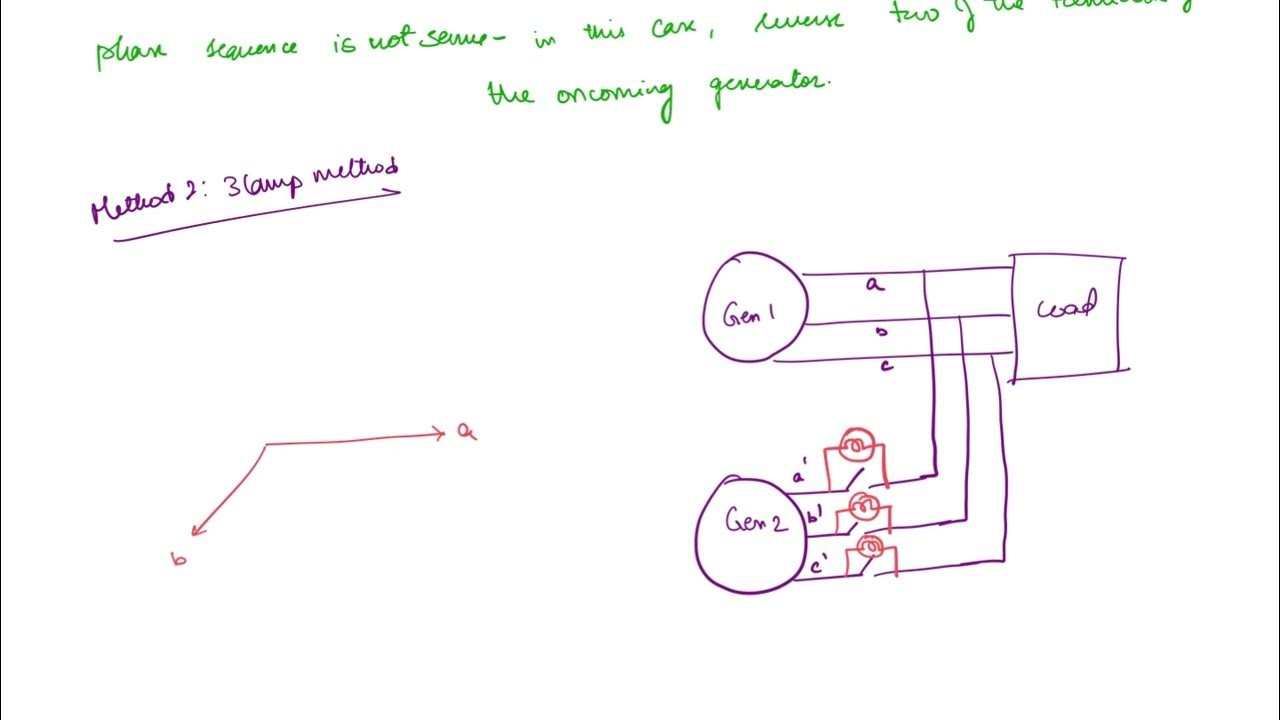 phase sequence is not same - in this case, reverse two of the
the oncoming generator.
Method 2: 3 lamp method
Gen 1
a
b
c
Load
a
b
Gen 2
a'
b'
c'